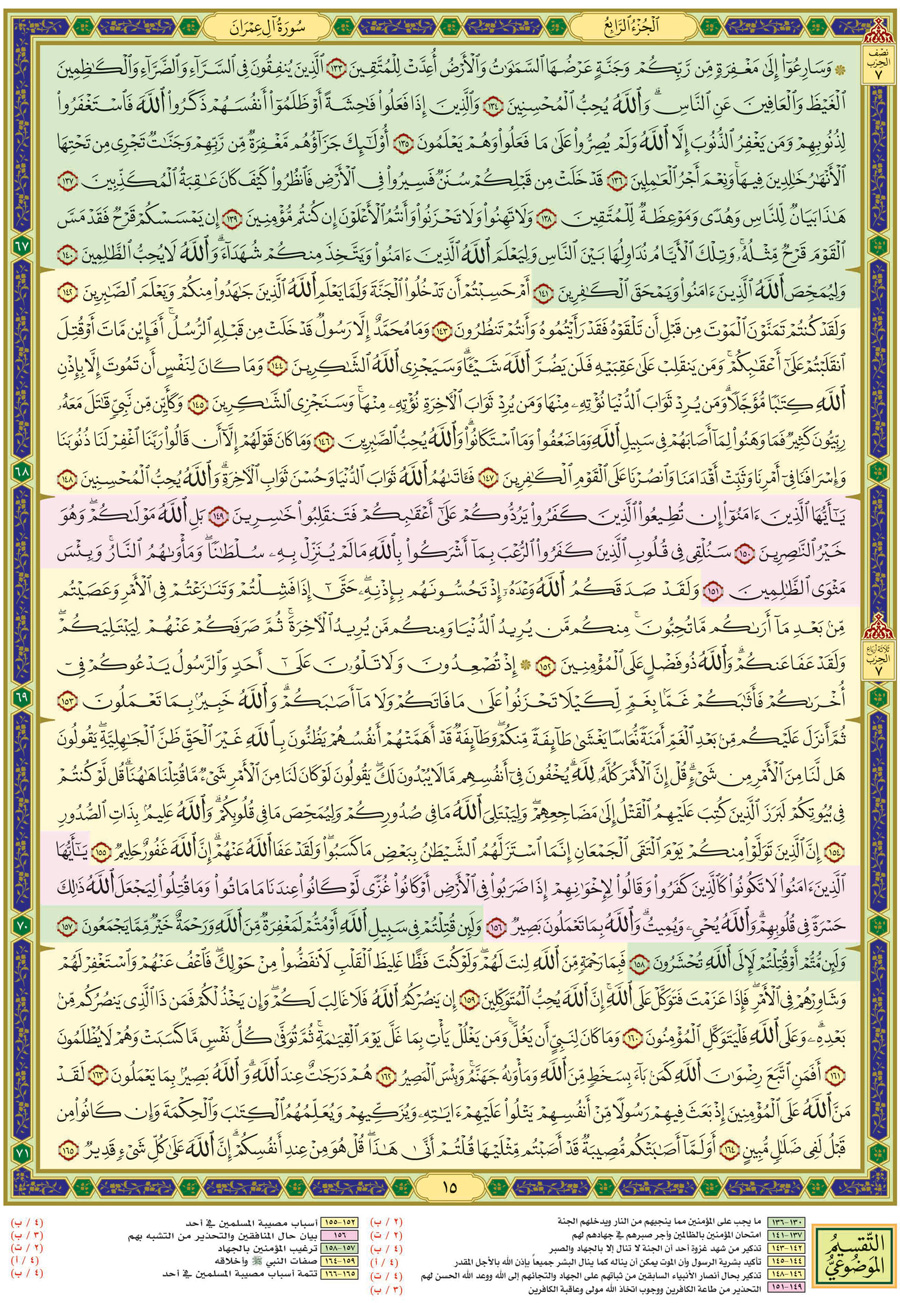 سُورَةُ آلِ عِمْرَانَ
الْجُزْءُ الرَّابِعُ
نصف الحزب ٧
۞ وَسَارِعُوٓا۟ إِلَىٰ مَغْفِرَةٍ مِّن رَّبِّكُمْ وَجَنَّةٍ عَرْضُهَا السَّمَٰوَٰتُ وَالْأَرْضُ أُعِدَّتْ لِلْمُتَّقِينَ ١٣٣ الَّذِينَ يُنفِقُونَ فِي السَّرَّآءِ وَالضَّرَّآءِ وَالْكَٰظِمِينَ
الْغَيْظَ وَالْعَافِينَ عَنِ النَّاسِ ۗ وَاللَّهُ يُحِبُّ الْمُحْسِنِينَ ١٣٤ وَالَّذِينَ إِذَا فَعَلُوا۟ فَٰحِشَةً أَوْ ظَلَمُوٓا۟ أَنفُسَهُمْ ذَكَرُوا۟ اللَّهَ فَاسْتَغْفَرُوا۟
لِذُنُوبِهِمْ وَمَن يَغْفِرُ الذُّنُوبَ إِلَّا اللَّهُ وَلَمْ يُصِرُّوا۟ عَلَىٰ مَا فَعَلُوا۟ وَهُمْ يَعْلَمُونَ ١٣٥ أُو۟لَٰٓئِكَ جَزَآؤُهُم مَّغْفِرَةٌ مِّن رَّبِّهِمْ وَجَنَّٰتٌ تَجْرِي مِن تَحْتِهَا
الْأَنْهَٰرُ خَٰلِدِينَ فِيهَا ۚ وَنِعْمَ أَجْرُ الْعَٰمِلِينَ ١٣٦ قَدْ خَلَتْ مِن قَبْلِكُمْ سُنَنٌ فَسِيرُوا۟ فِي الْأَرْضِ فَانظُرُوا۟ كَيْفَ كَانَ عَٰقِبَةُ الْمُكَذِّبِينَ ١٣٧
هَٰذَا بَيَانٌ لِّلنَّاسِ وَهُدًى وَمَوْعِظَةٌ لِّلْمُتَّقِينَ ١٣٨ وَلَا تَهِنُوا۟ وَلَا تَحْزَنُوا۟ وَأَنتُمُ الْأَعْلَوْنَ إِن كُنتُم مُّؤْمِنِينَ ١٣٩ إِن يَمْسَسْكُمْ قَرْحٌ فَقَدْ مَسَّ
الْقَوْمَ قَرْحٌ مِّثْلُهُۥ ۚ وَتِلْكَ الْأَيَّامُ نُدَاوِلُهَا بَيْنَ النَّاسِ وَلِيَعْلَمَ اللَّهُ الَّذِينَ ءَامَنُوا۟ وَيَتَّخِذَ مِنكُمْ شُهَدَآءَ ۗ وَاللَّهُ لَا يُحِبُّ الظَّٰلِمِينَ ١٤٠
٦٧
وَلِيُمَحِّصَ اللَّهُ الَّذِينَ ءَامَنُوا۟ وَيَمْحَقَ الْكَٰفِرِينَ ١٤١ أَمْ حَسِبْتُمْ أَن تَدْخُلُوا۟ الْجَنَّةَ وَلَمَّا يَعْلَمِ اللَّهُ الَّذِينَ جَٰهَدُوا۟ مِنكُمْ وَيَعْلَمَ الصَّٰبِرِينَ ١٤٢
وَلَقَدْ كُنتُمْ تَمَنَّوْنَ الْمَوْتَ مِن قَبْلِ أَن تَلْقَوْهُ فَقَدْ رَأَيْتُمُوهُ وَأَنتُمْ تَنظُرُونَ ١٤٣ وَمَا مُحَمَّدٌ إِلَّا رَسُولٌ قَدْ خَلَتْ مِن قَبْلِهِ الرُّسُلُ ۚ أَفَإِي۟ن مَّاتَ أَوْ قُتِلَ
انقَلَبْتُمْ عَلَىٰٓ أَعْقَٰبِكُمْ ۚ وَمَن يَنقَلِبْ عَلَىٰ عَقِبَيْهِ فَلَن يَضُرَّ اللَّهَ شَيْـًٔا ۗ وَسَيَجْزِي اللَّهُ الشَّٰكِرِينَ ١٤٤ وَمَا كَانَ لِنَفْسٍ أَن تَمُوتَ إِلَّا بِإِذْنِ
اللَّهِ كِتَٰبًا مُّؤَجَّلًا ۗ وَمَن يُرِدْ ثَوَابَ الدُّنْيَا نُؤْتِهِۦ مِنْهَا وَمَن يُرِدْ ثَوَابَ الْءَاخِرَةِ نُؤْتِهِۦ مِنْهَا ۚ وَسَنَجْزِي الشَّٰكِرِينَ ١٤٥ وَكَأَيِّن مِّن نَّبِيٍّ قَٰتَلَ مَعَهُۥ
رِبِّيُّونَ كَثِيرٌ فَمَا وَهَنُوا۟ لِمَآ أَصَابَهُمْ فِي سَبِيلِ اللَّهِ وَمَا ضَعُفُوا۟ وَمَا اسْتَكَانُوا۟ ۗ وَاللَّهُ يُحِبُّ الصَّٰبِرِينَ ١٤٦ وَمَا كَانَ قَوْلَهُمْ إِلَّآ أَن قَالُوا۟ رَبَّنَا اغْفِرْ لَنَا ذُنُوبَنَا
٦٨
وَإِسْرَافَنَا فِيٓ أَمْرِنَا وَثَبِّتْ أَقْدَامَنَا وَانصُرْنَا عَلَى الْقَوْمِ الْكَٰفِرِينَ ١٤٧ فَـَٔاتَىٰهُمُ اللَّهُ ثَوَابَ الدُّنْيَا وَحُسْنَ ثَوَابِ الْءَاخِرَةِ ۗ وَاللَّهُ يُحِبُّ الْمُحْسِنِينَ ١٤٨
يَٰٓأَيُّهَا الَّذِينَ ءَامَنُوٓا۟ إِن تُطِيعُوا۟ الَّذِينَ كَفَرُوا۟ يَرُدُّوكُمْ عَلَىٰٓ أَعْقَٰبِكُمْ فَتَنقَلِبُوا۟ خَٰسِرِينَ ١٤٩ بَلِ اللَّهُ مَوْلَىٰكُمْ ۖ وَهُوَ
خَيْرُ النَّٰصِرِينَ ١٥٠ سَنُلْقِي فِي قُلُوبِ الَّذِينَ كَفَرُوا۟ الرُّعْبَ بِمَآ أَشْرَكُوا۟ بِاللَّهِ مَا لَمْ يُنَزِّلْ بِهِۦ سُلْطَٰنًا ۖ وَمَأْوَىٰهُمُ النَّارُ ۚ وَبِئْسَ
مَثْوَى الظَّٰلِمِينَ ١٥١ وَلَقَدْ صَدَقَكُمُ اللَّهُ وَعْدَهُۥٓ إِذْ تَحُسُّونَهُم بِإِذْنِهِۦ ۖ حَتَّىٰٓ إِذَا فَشِلْتُمْ وَتَنَٰزَعْتُمْ فِي الْأَمْرِ وَعَصَيْتُم
ثلاثة أرباع الحزب ٧
مِّن بَعْدِ مَآ أَرَىٰكُم مَّا تُحِبُّونَ ۚ مِنكُم مَّن يُرِيدُ الدُّنْيَا وَمِنكُم مَّن يُرِيدُ الْءَاخِرَةَ ۚ ثُمَّ صَرَفَكُمْ عَنْهُمْ لِيَبْتَلِيَكُمْ ۖ
وَلَقَدْ عَفَا عَنكُمْ ۗ وَاللَّهُ ذُو فَضْلٍ عَلَى الْمُؤْمِنِينَ ١٥٢ ۞ إِذْ تُصْعِدُونَ وَلَا تَلْوُۥنَ عَلَىٰٓ أَحَدٍ وَالرَّسُولُ يَدْعُوكُمْ فِيٓ
أُخْرَىٰكُمْ فَأَثَٰبَكُمْ غَمًّۢا بِغَمٍّ لِّكَيْلَا تَحْزَنُوا۟ عَلَىٰ مَا فَاتَكُمْ وَلَا مَآ أَصَٰبَكُمْ ۗ وَاللَّهُ خَبِيرٌۢ بِمَا تَعْمَلُونَ ١٥٣
٦٩
ثُمَّ أَنزَلَ عَلَيْكُم مِّنۢ بَعْدِ الْغَمِّ أَمَنَةً نُّعَاسًا يَغْشَىٰ طَآئِفَةً مِّنكُمْ ۖ وَطَآئِفَةٌ قَدْ أَهَمَّتْهُمْ أَنفُسُهُمْ يَظُنُّونَ بِاللَّهِ غَيْرَ الْحَقِّ ظَنَّ الْجَٰهِلِيَّةِ ۖ يَقُولُونَ
هَل لَّنَا مِنَ الْأَمْرِ مِن شَيْءٍ ۗ قُلْ إِنَّ الْأَمْرَ كُلَّهُۥ لِلَّهِ ۗ يُخْفُونَ فِيٓ أَنفُسِهِم مَّا لَا يُبْدُونَ لَكَ ۖ يَقُولُونَ لَوْ كَانَ لَنَا مِنَ الْأَمْرِ شَيْءٌ مَّا قُتِلْنَا هَٰهُنَا ۗ قُل لَّوْ كُنتُمْ
فِي بُيُوتِكُمْ لَبَرَزَ الَّذِينَ كُتِبَ عَلَيْهِمُ الْقَتْلُ إِلَىٰ مَضَاجِعِهِمْ ۖ وَلِيَبْتَلِيَ اللَّهُ مَا فِي صُدُورِكُمْ وَلِيُمَحِّصَ مَا فِي قُلُوبِكُمْ ۗ وَاللَّهُ عَلِيمٌۢ بِذَاتِ الصُّدُورِ
١٥٤ إِنَّ الَّذِينَ تَوَلَّوْا۟ مِنكُمْ يَوْمَ الْتَقَى الْجَمْعَانِ إِنَّمَا اسْتَزَلَّهُمُ الشَّيْطَٰنُ بِبَعْضِ مَا كَسَبُوا۟ ۖ وَلَقَدْ عَفَا اللَّهُ عَنْهُمْ ۗ إِنَّ اللَّهَ غَفُورٌ حَلِيمٌ ١٥٥ يَٰٓأَيُّهَا
الَّذِينَ ءَامَنُوا۟ لَا تَكُونُوا۟ كَالَّذِينَ كَفَرُوا۟ وَقَالُوا۟ لِإِخْوَٰنِهِمْ إِذَا ضَرَبُوا۟ فِي الْأَرْضِ أَوْ كَانُوا۟ غُزًّى لَّوْ كَانُوا۟ عِندَنَا مَا مَاتُوا۟ وَمَا قُتِلُوا۟ لِيَجْعَلَ اللَّهُ ذَٰلِكَ
حَسْرَةً فِي قُلُوبِهِمْ ۗ وَاللَّهُ يُحْيِۦ وَيُمِيتُ ۗ وَاللَّهُ بِمَا تَعْمَلُونَ بَصِيرٌ ١٥٦ وَلَئِن قُتِلْتُمْ فِي سَبِيلِ اللَّهِ أَوْ مُتُّمْ لَمَغْفِرَةٌ مِّنَ اللَّهِ وَرَحْمَةٌ خَيْرٌ مِّمَّا يَجْمَعُونَ ١٥٧
٧٠
وَلَئِن مُّتُّمْ أَوْ قُتِلْتُمْ لَإِلَى اللَّهِ تُحْشَرُونَ ١٥٨ فَبِمَا رَحْمَةٍ مِّنَ اللَّهِ لِنتَ لَهُمْ ۖ وَلَوْ كُنتَ فَظًّا غَلِيظَ الْقَلْبِ لَانفَضُّوا۟ مِنْ حَوْلِكَ ۖ فَاعْفُ عَنْهُمْ وَاسْتَغْفِرْ لَهُمْ
وَشَاوِرْهُمْ فِي الْأَمْرِ ۖ فَإِذَا عَزَمْتَ فَتَوَكَّلْ عَلَى اللَّهِ ۚ إِنَّ اللَّهَ يُحِبُّ الْمُتَوَكِّلِينَ ١٥٩ إِن يَنصُرْكُمُ اللَّهُ فَلَا غَالِبَ لَكُمْ ۖ وَإِن يَخْذُلْكُمْ فَمَن ذَا الَّذِي يَنصُرُكُم مِّنۢ
بَعْدِهِۦ ۗ وَعَلَى اللَّهِ فَلْيَتَوَكَّلِ الْمُؤْمِنُونَ ١٦٠ وَمَا كَانَ لِنَبِيٍّ أَن يَغُلَّ ۚ وَمَن يَغْلُلْ يَأْتِ بِمَا غَلَّ يَوْمَ الْقِيَٰمَةِ ۚ ثُمَّ تُوَفَّىٰ كُلُّ نَفْسٍ مَّا كَسَبَتْ وَهُمْ لَا يُظْلَمُونَ
١٦١ أَفَمَنِ اتَّبَعَ رِضْوَٰنَ اللَّهِ كَمَنۢ بَآءَ بِسَخَطٍ مِّنَ اللَّهِ وَمَأْوَىٰهُ جَهَنَّمُ ۚ وَبِئْسَ الْمَصِيرُ ١٦٢ هُمْ دَرَجَٰتٌ عِندَ اللَّهِ ۗ وَاللَّهُ بَصِيرٌۢ بِمَا يَعْمَلُونَ ١٦٣ لَقَدْ
مَنَّ اللَّهُ عَلَى الْمُؤْمِنِينَ إِذْ بَعَثَ فِيهِمْ رَسُولًا مِّنْ أَنفُسِهِمْ يَتْلُوا۟ عَلَيْهِمْ ءَايَٰتِهِۦ وَيُزَكِّيهِمْ وَيُعَلِّمُهُمُ الْكِتَٰبَ وَالْحِكْمَةَ وَإِن كَانُوا۟ مِن
قَبْلُ لَفِي ضَلَٰلٍ مُّبِينٍ ١٦٤ أَوَلَمَّآ أَصَٰبَتْكُم مُّصِيبَةٌ قَدْ أَصَبْتُم مِّثْلَيْهَا قُلْتُمْ أَنَّىٰ هَٰذَا ۖ قُلْ هُوَ مِنْ عِندِ أَنفُسِكُمْ ۗ إِنَّ اللَّهَ عَلَىٰ كُلِّ شَيْءٍ قَدِيرٌ ١٦٥
٧١
١٥
التَّقْسِيمُ المَوْضُوعِيُّ
١٣٠-١٣٦ ما يجب على المؤمنين مما ينجيهم من النار ويدخلهم الجنة (٢ / ب)
١٣٧-١٤١ امتحان المؤمنين بالظالمين وأجر صبرهم في جهادهم لهم (٢ / ت)
١٤٢-١٤٣ تذكير من شهد غزوة أحد أن الجنة لا تنال إلا بالجهاد والصبر (٤ / ب)
١٤٤-١٤٥ تأكيد بشرية الرسول وأن الموت يمكن أن يناله كما ينال البشر جميعاً بإذن الله بالأجل المقدر (٤ / أ)
١٤٦-١٤٨ تذكير بحال أنصار الأنبياء السابقين من ثباتهم على الجهاد والتجائهم إلى الله ووعد الله الحسن لهم (٤ / ت)
١٤٩-١٥١ التحذير من طاعة الكافرين ووجوب اتخاذ الله مولى وعاقبة الكافرين (٣ / ب)
١٥٢-١٥٥ أسباب مصيبة المسلمين في أحد (٤ / ب)
١٥٦ بيان حال المنافقين والتحذير من التشبه بهم (٣ / ب)
١٥٧-١٥٨ ترغيب المؤمنين بالجهاد (٢ / ت)
١٥٩-١٦٤ صفات النبي ﷺ وأخلاقه (٤ / أ)
١٦٥-١٦٦ تتمة أسباب مصيبة المسلمين في أحد (٤ / ب)